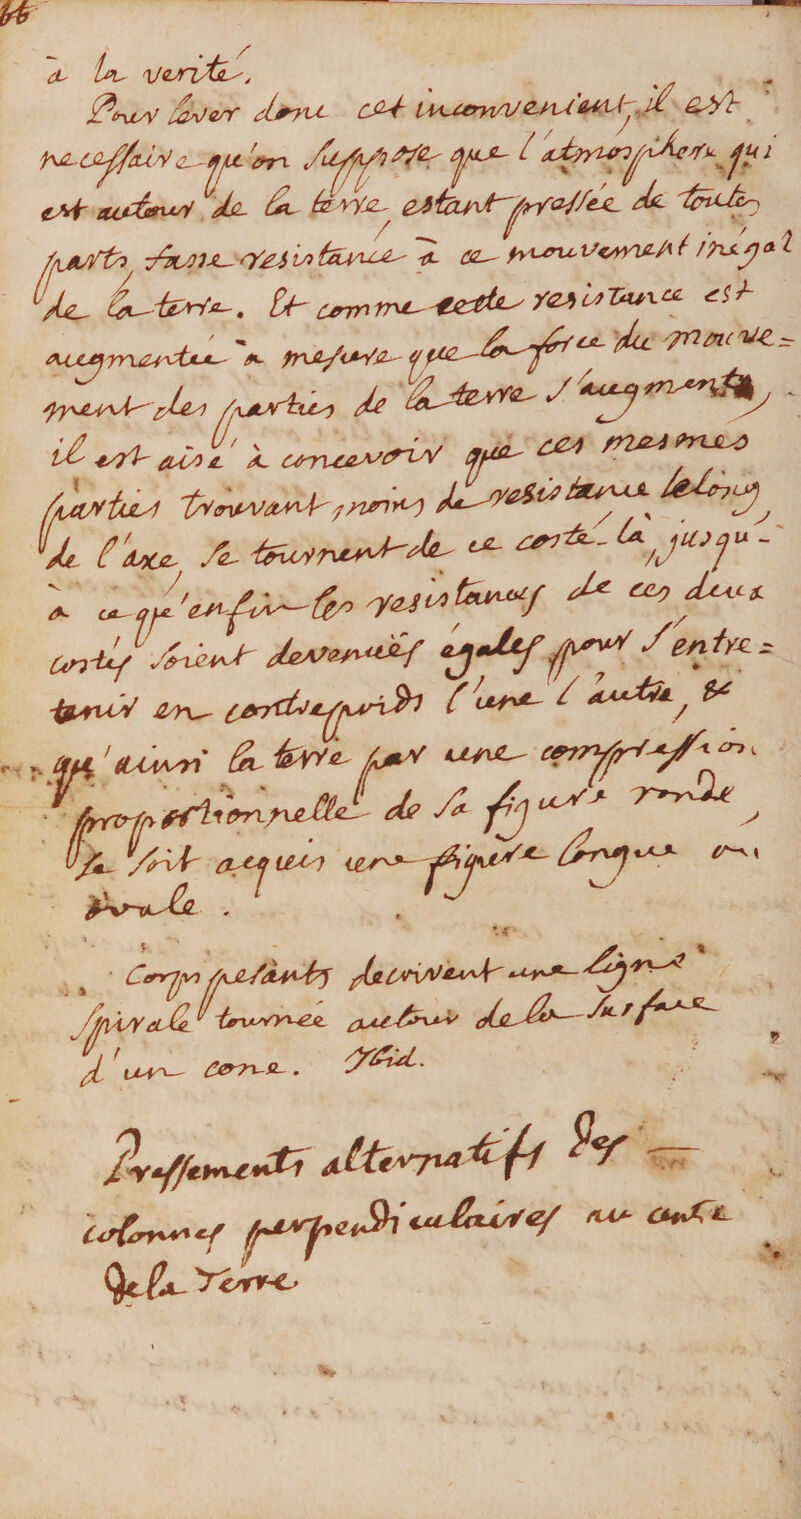 66
à la verité.
Pour lever donc cet inconvenient, il est
necessaire qu'on suppose que l'atmosphere qui
est autour de la terre estant pressée de toutes
parts, fasse resistance à ce mouvement inégal
de la terre. Et comme cette resistance est
augmentée à mesure que la force du mouve=
ment des parties de la terre s'augmente,
il est aisé à concevoir que ces mesmes
parties trouvant moins de resistance le long
de l'axe, se tournent de ce costé-là, jusqu'
à ce qu'enfin les resistances de ces deux
costés soient devenuës égales pour s'entre=
tenir en contrepoids l'une l'autre, &
qu'ainsi la terre par une compression
proportionnelle de sa figure ronde,
se soit acquis une figure longue ou
ovale.
Corps pesants decrivent une ligne
spirale tournée autour de la surface
d'un cone. Ibid.
Pressements alternatifs des
colonnes perpendiculaires au centre
de la Terre